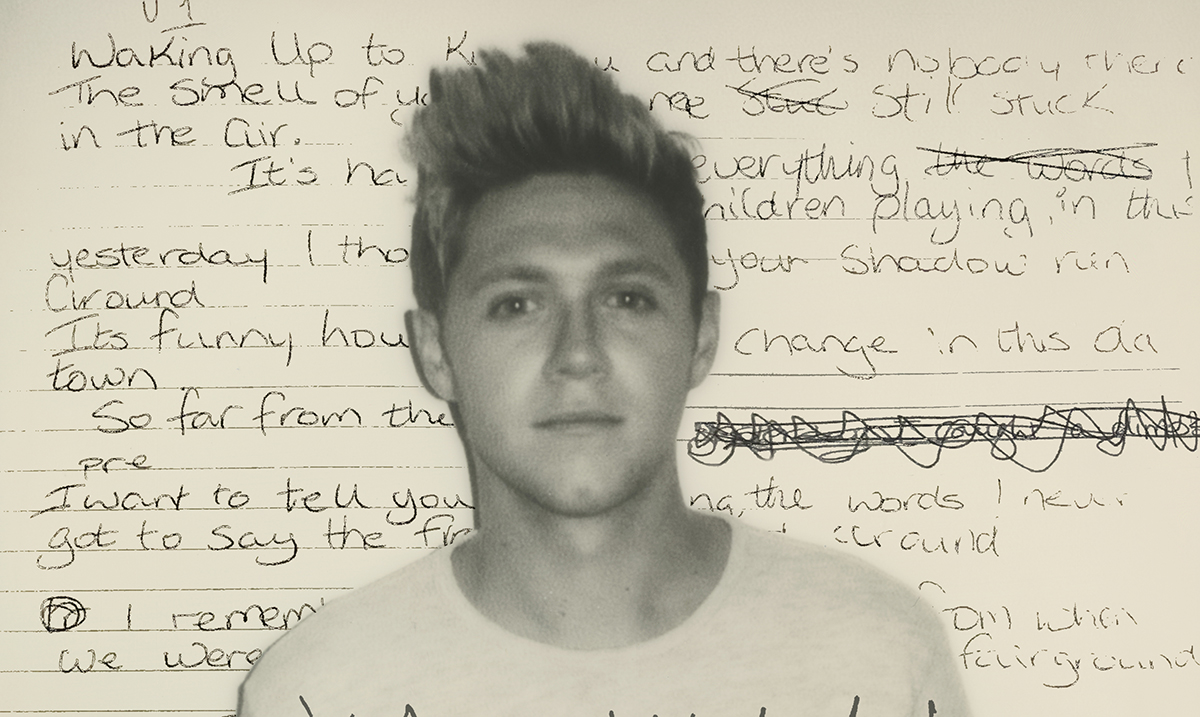 V1
Waking Up to K u and there's nobody there
The Smell of yo me Still Stuck
in the air.
It's ha everything the words
hildren playing in this
yesterday I tho your Shadow run
Around
Its funny how change in this
town
So far from the
pre
I want to tell you the words I never
got to say the fir around
I remem when
we were fairground